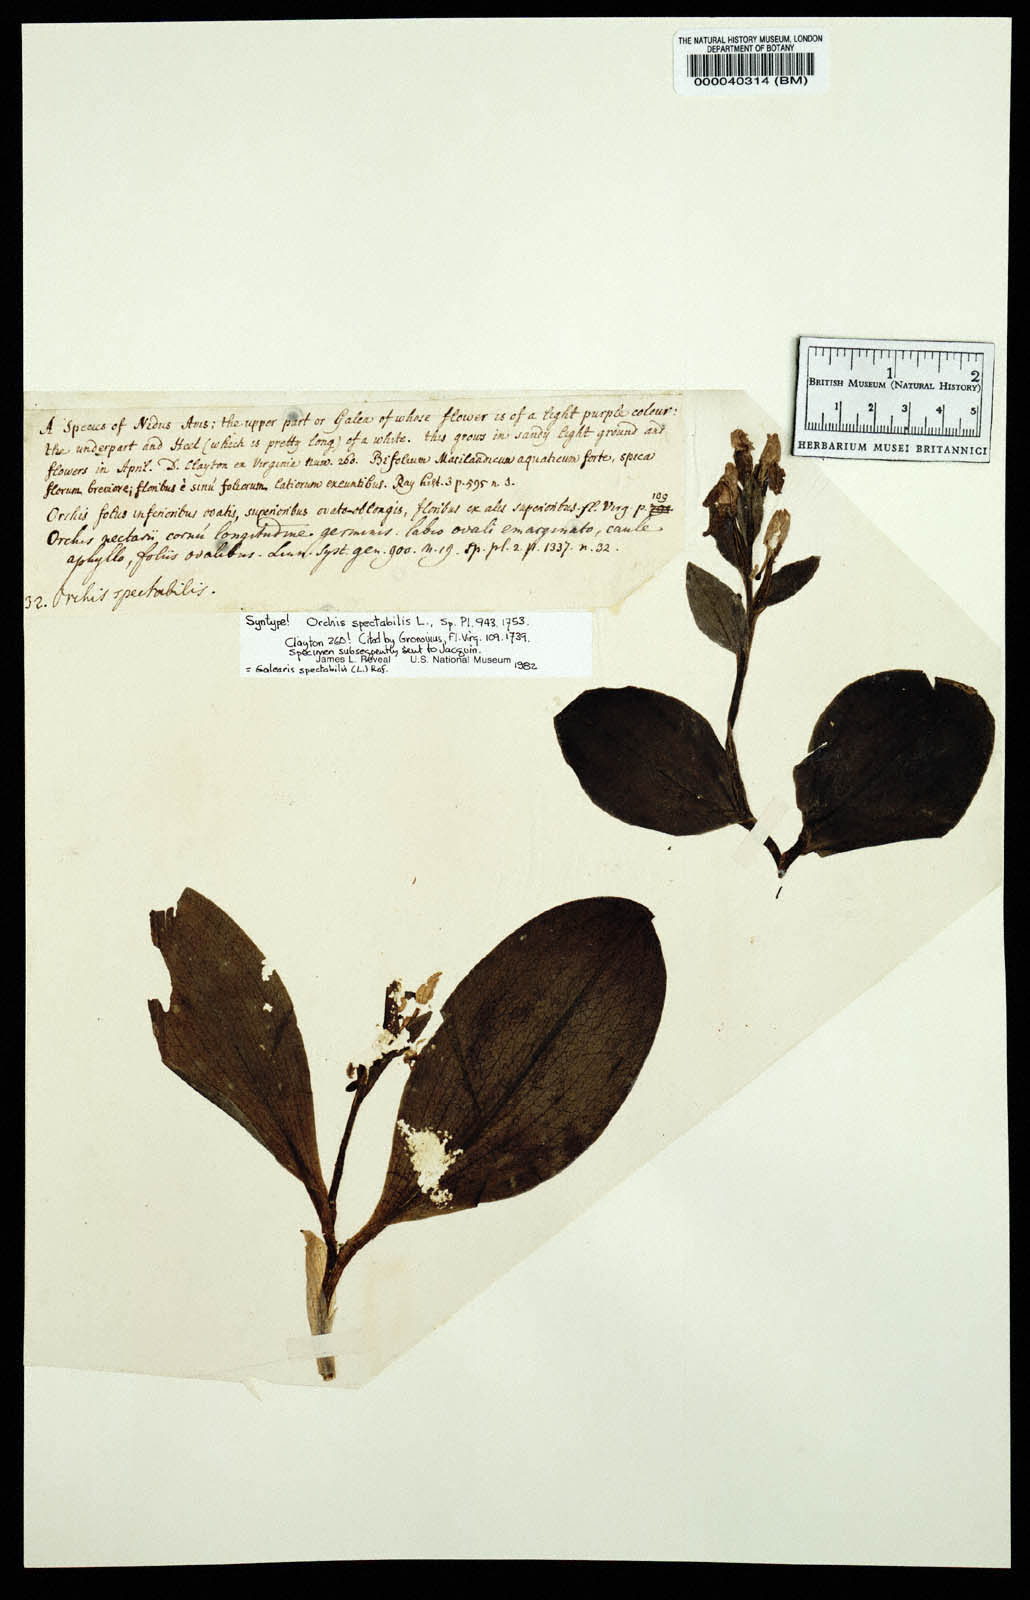 THE NATURAL HISTORY MUSEUM, LONDON
DEPARTMENT OF BOTANY
000040314 (BM)
1 2
BRITISH MUSEUM (NATURAL HISTORY)
1 2 3 4 5
HERBARIUM MUSEI BRITANNICI
A Species of Nidus Avis: the upper part or Galea of whose flower is of a light purple colour:
the underpart and Heel (which is pretty long) of a white. this grows in sandy light ground and
flowers in April. D. Clayton ex Virginia num. 260. Bifolium Marilandicum aquaticum forte, spica
florum breviore; floribus è sinú foliorum latiorum exeuntibus. Ray hist. 3 p. 595 n. 3.
Orchis foliis inferioribus ovatis, superioribus ovato-oblongis, floribus ex alis superioribus. Fl. Virg. p. 109
Orchis nectarii cornú longitudine germinis. labio ovali emarginato, caule
aphyllo, foliis ovalibus. Linn. Syst. gen. 900. n. 19. Sp. pl. 2. p. 1337. n. 32.
32. Orchis spectabilis.
Syntype! Orchis spectabilis L., Sp. Pl. 943. 1753.
Clayton 260! Cited by Gronovius, Fl. Virg. 109. 1739.
Specimen subsequently sent to Jacquin.
James L. Reveal U.S. National Museum 1982
= Galearis spectabilis (L.) Raf.